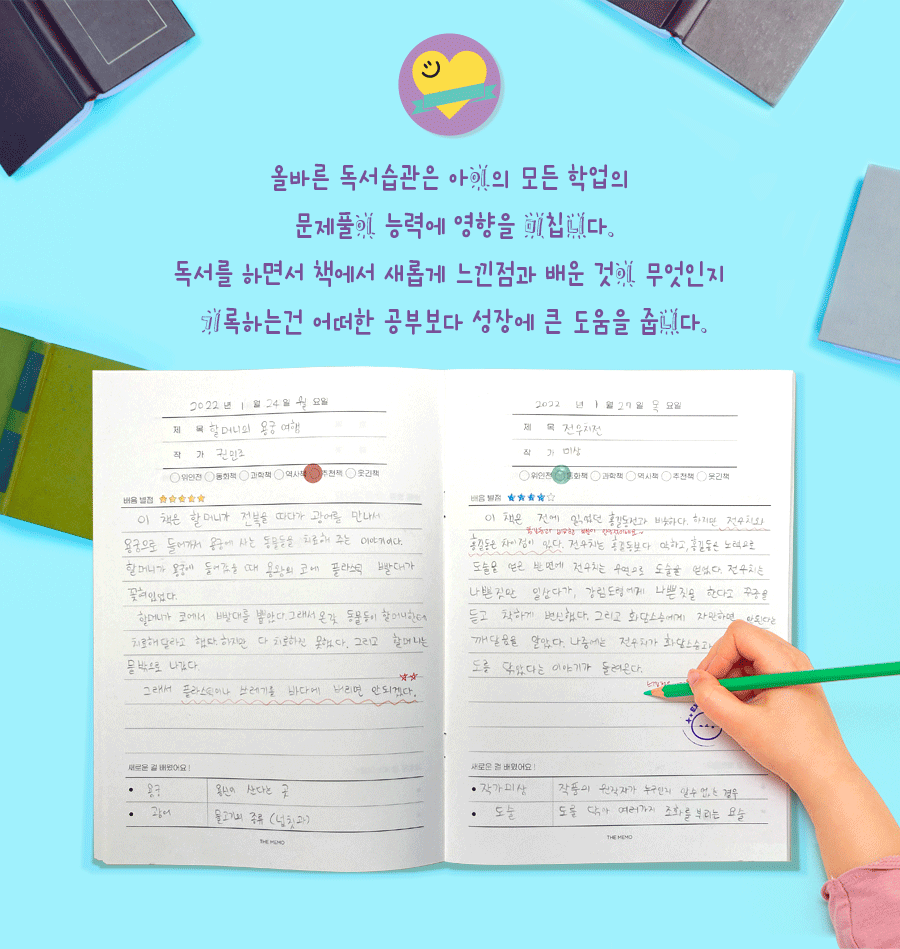 올바른 독서습관은 아이의 모든 학업의
문제풀이 능력에 영향을 미칩니다.
독서를 하면서 책에서 새롭게 느낀점과 배운 것이 무엇인지
기록하는건 어떠한 공부보다 성장에 큰 도움을 줍니다.
2022 년 1 월 24 일 월 요일
제 목 할머니의 용궁 여행
작 가 권민조
위인전 동화책 과학책 역사책 추천책 웃긴책
배움 별점
이 책은 할머니가 전복을 따다가 광어를 만나서
용궁으로 들어가서 용궁에 사는 동물들을 치료해 주는 이야기이다.
할머니가 용궁에 들어갔을 때 용왕의 코에 플라스틱 빨대가
꽂혀있었다.
할머니가 코에서 빨대를 뽑았다. 그래서 온갖 동물들이 할머니한테
치료해달라고 했다. 하지만 다 치료하진 못했다. 그리고 할머니는
물밖으로 나갔다.
그래서 플라스틱이나 쓰레기를 바다에 버리면 안되겠다.
새로운 걸 배웠어요!
용궁 용왕이 산다는 곳
광어 물고기의 종류 (넙칫과)
THE MEMO
2022 년 1 월 27 일 목 요일
제 목 전우치전
작 가 미상
위인전 동화책 과학책 역사책 추천책 웃긴책
배움 별점
이 책은 전에 읽었던 홍길동전과 비슷하다. 하지만 전우치와
홍길동은 차이점이 있다. 전우치는 홍길동보다 악하고, 홍길동은 노력으로
도술을 얻은 반면에 전우치는 우연으로 도술을 얻었다. 전우치는
나쁜짓만 일삼다가, 강림도령에게 나쁜짓을 한다고 꾸중을
듣고 착하게 변신했다. 그리고 화담스승에게 자만하면 안된다는
깨달음을 알았다. 나중에는 전우치가 화담스승과
도를 닦았다는 이야기가 들려온다.
새로운 걸 배웠어요!
작가미상 작품의 원작자가 누구인지 알수 없는 경우
도술 도를 닦아 여러가지 조화를 부리는 요술
THE MEMO